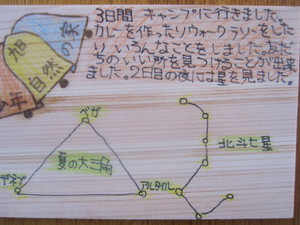 3日間 キャンプに行きました。
カレーを作ったりウォークラリーをした
り いろんなことをしました。友だ
ちのいい所を見つけることが出来
ました。2日目の夜には星を見ました。
旭
自然
の家
少年
ベガ
夏の大三角
デネブ
アルタイル
北斗七星